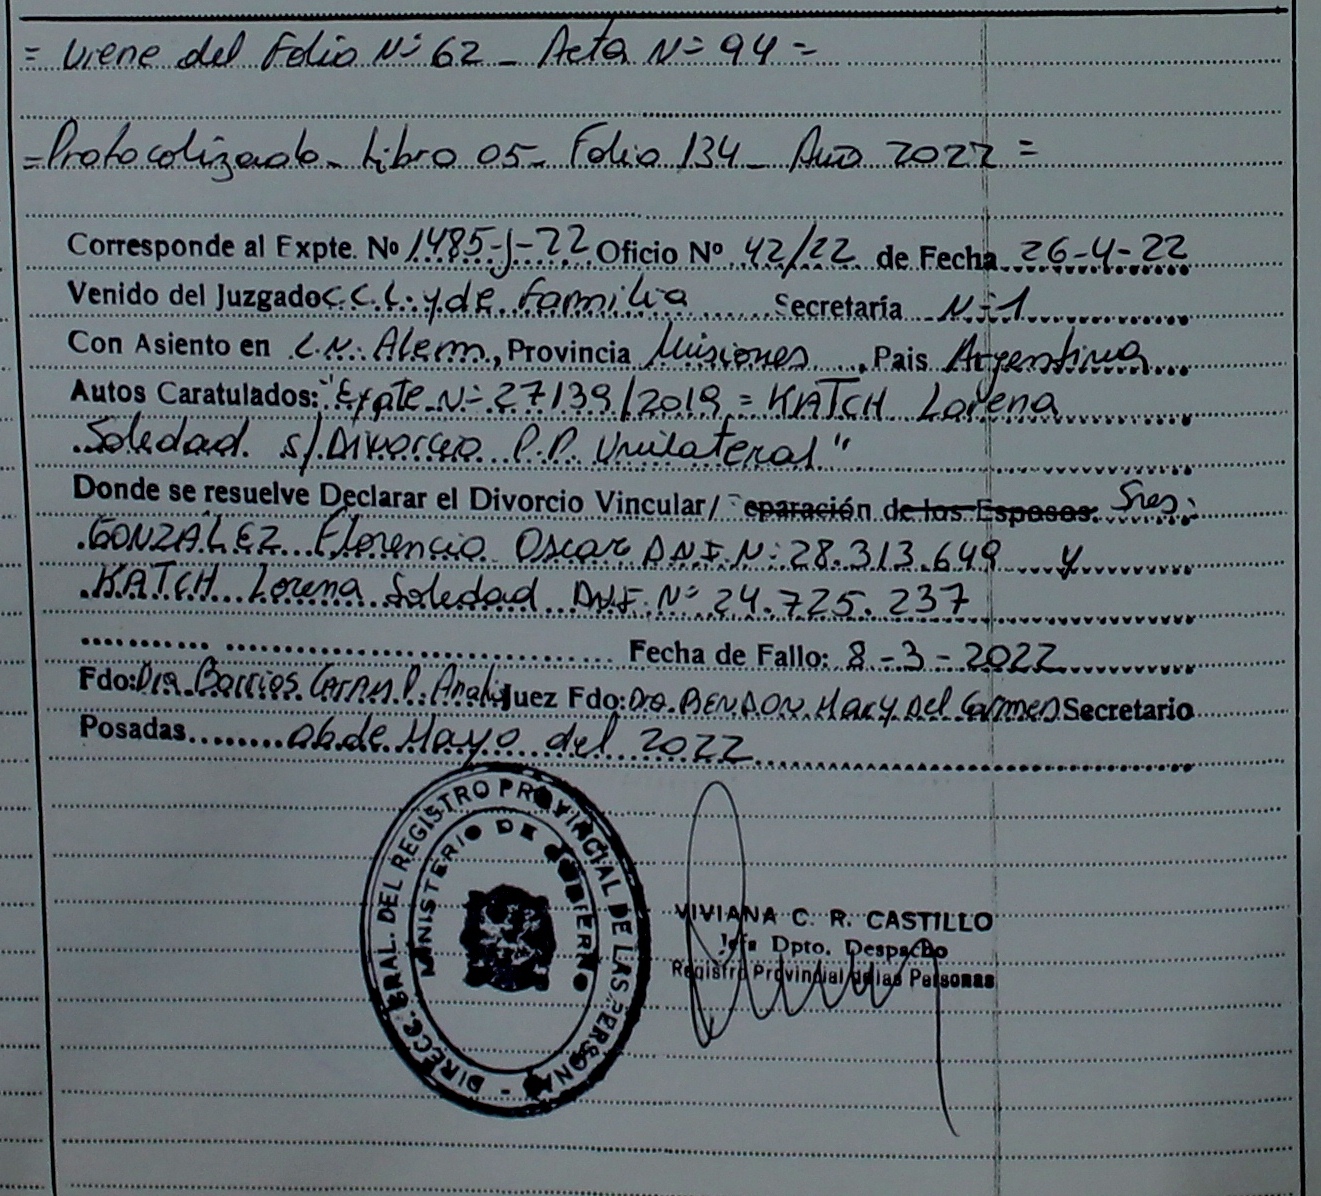 = Viene del Folio Nº 62 _ Acta Nº 94 =
= Protocolizado _ Libro 05 _ Folio 134 _ Año 2022 =
Corresponde al Expte. No 1485-J-22 Oficio Nº 42/22 de Fecha 26-4-22
Venido del Juzgado C.C.L. y de Familia Secretaría Nº 1
Con Asiento en L.N. Alem, Provincia Misiones, Pais Argentina
Autos Caratulados: "Expte Nº 27139/2019 = KATCH Lorena
Soledad s/ Divorcio P.P. Unilateral"
Donde se resuelve Declarar el Divorcio Vincular/ eparación de los Esposos: Sres:
GONZALEZ Florencio Oscar D.N.I. Nº 28.313.649 y
KATCH Lorena Soledad DNI. Nº 24.725.237
Fecha de Fallo: 8-3-2022
Fdo: Dra. Barrios Juez Fdo: Dra. Mary Del Carmen Secretario
Posadas 06 de Mayo del 2022
DIRECC. GRAL. DEL REGISTRO PROVINCIAL DE LAS PERSONAS -
MINISTERIO DE GOBIERNO
VIVIANA C. R. CASTILLO
Jefa Dpto. Despacho
Registro Provincial de las Personas